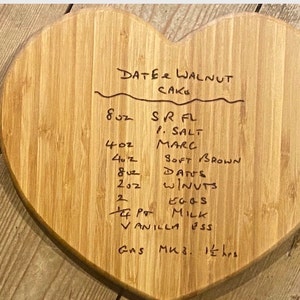 DATE & WALNUT
CAKE
8oz S R FL
P. SALT
4oz MARG
4oz SOFT BROWN
8oz DATES
2oz W/NUTS
2 EGGS
1/4 PT MILK
VANILLA ESS
GAS MK 3. 1½ hrs